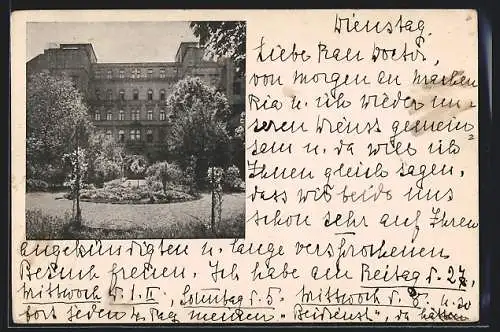 Dienstag.
Liebe Frau Doctor,
von morgen an machen
Ria u. ich wieder un-
seren Dienst gemein-
sam u. da will ich
Ihnen gleich sagen,
dass wir beide uns
schon sehr auf Ihren
angekündigten u. lange versprochenen
Besuch freuen. Ich habe am Freitag d. 27.,
Mittwoch d. 1. II., Sonntag d. 5. Mittwoch d. 8. u. so
fort jeden Tag meinen "Beidienst", da hätten